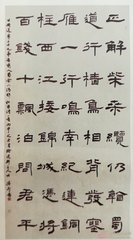 正解柴桑纜仍看蜀
道行檣烏相背發塞
雁一行鳴南紀連銅
柱西江接錦城憑將
百錢卜飄泊問君平